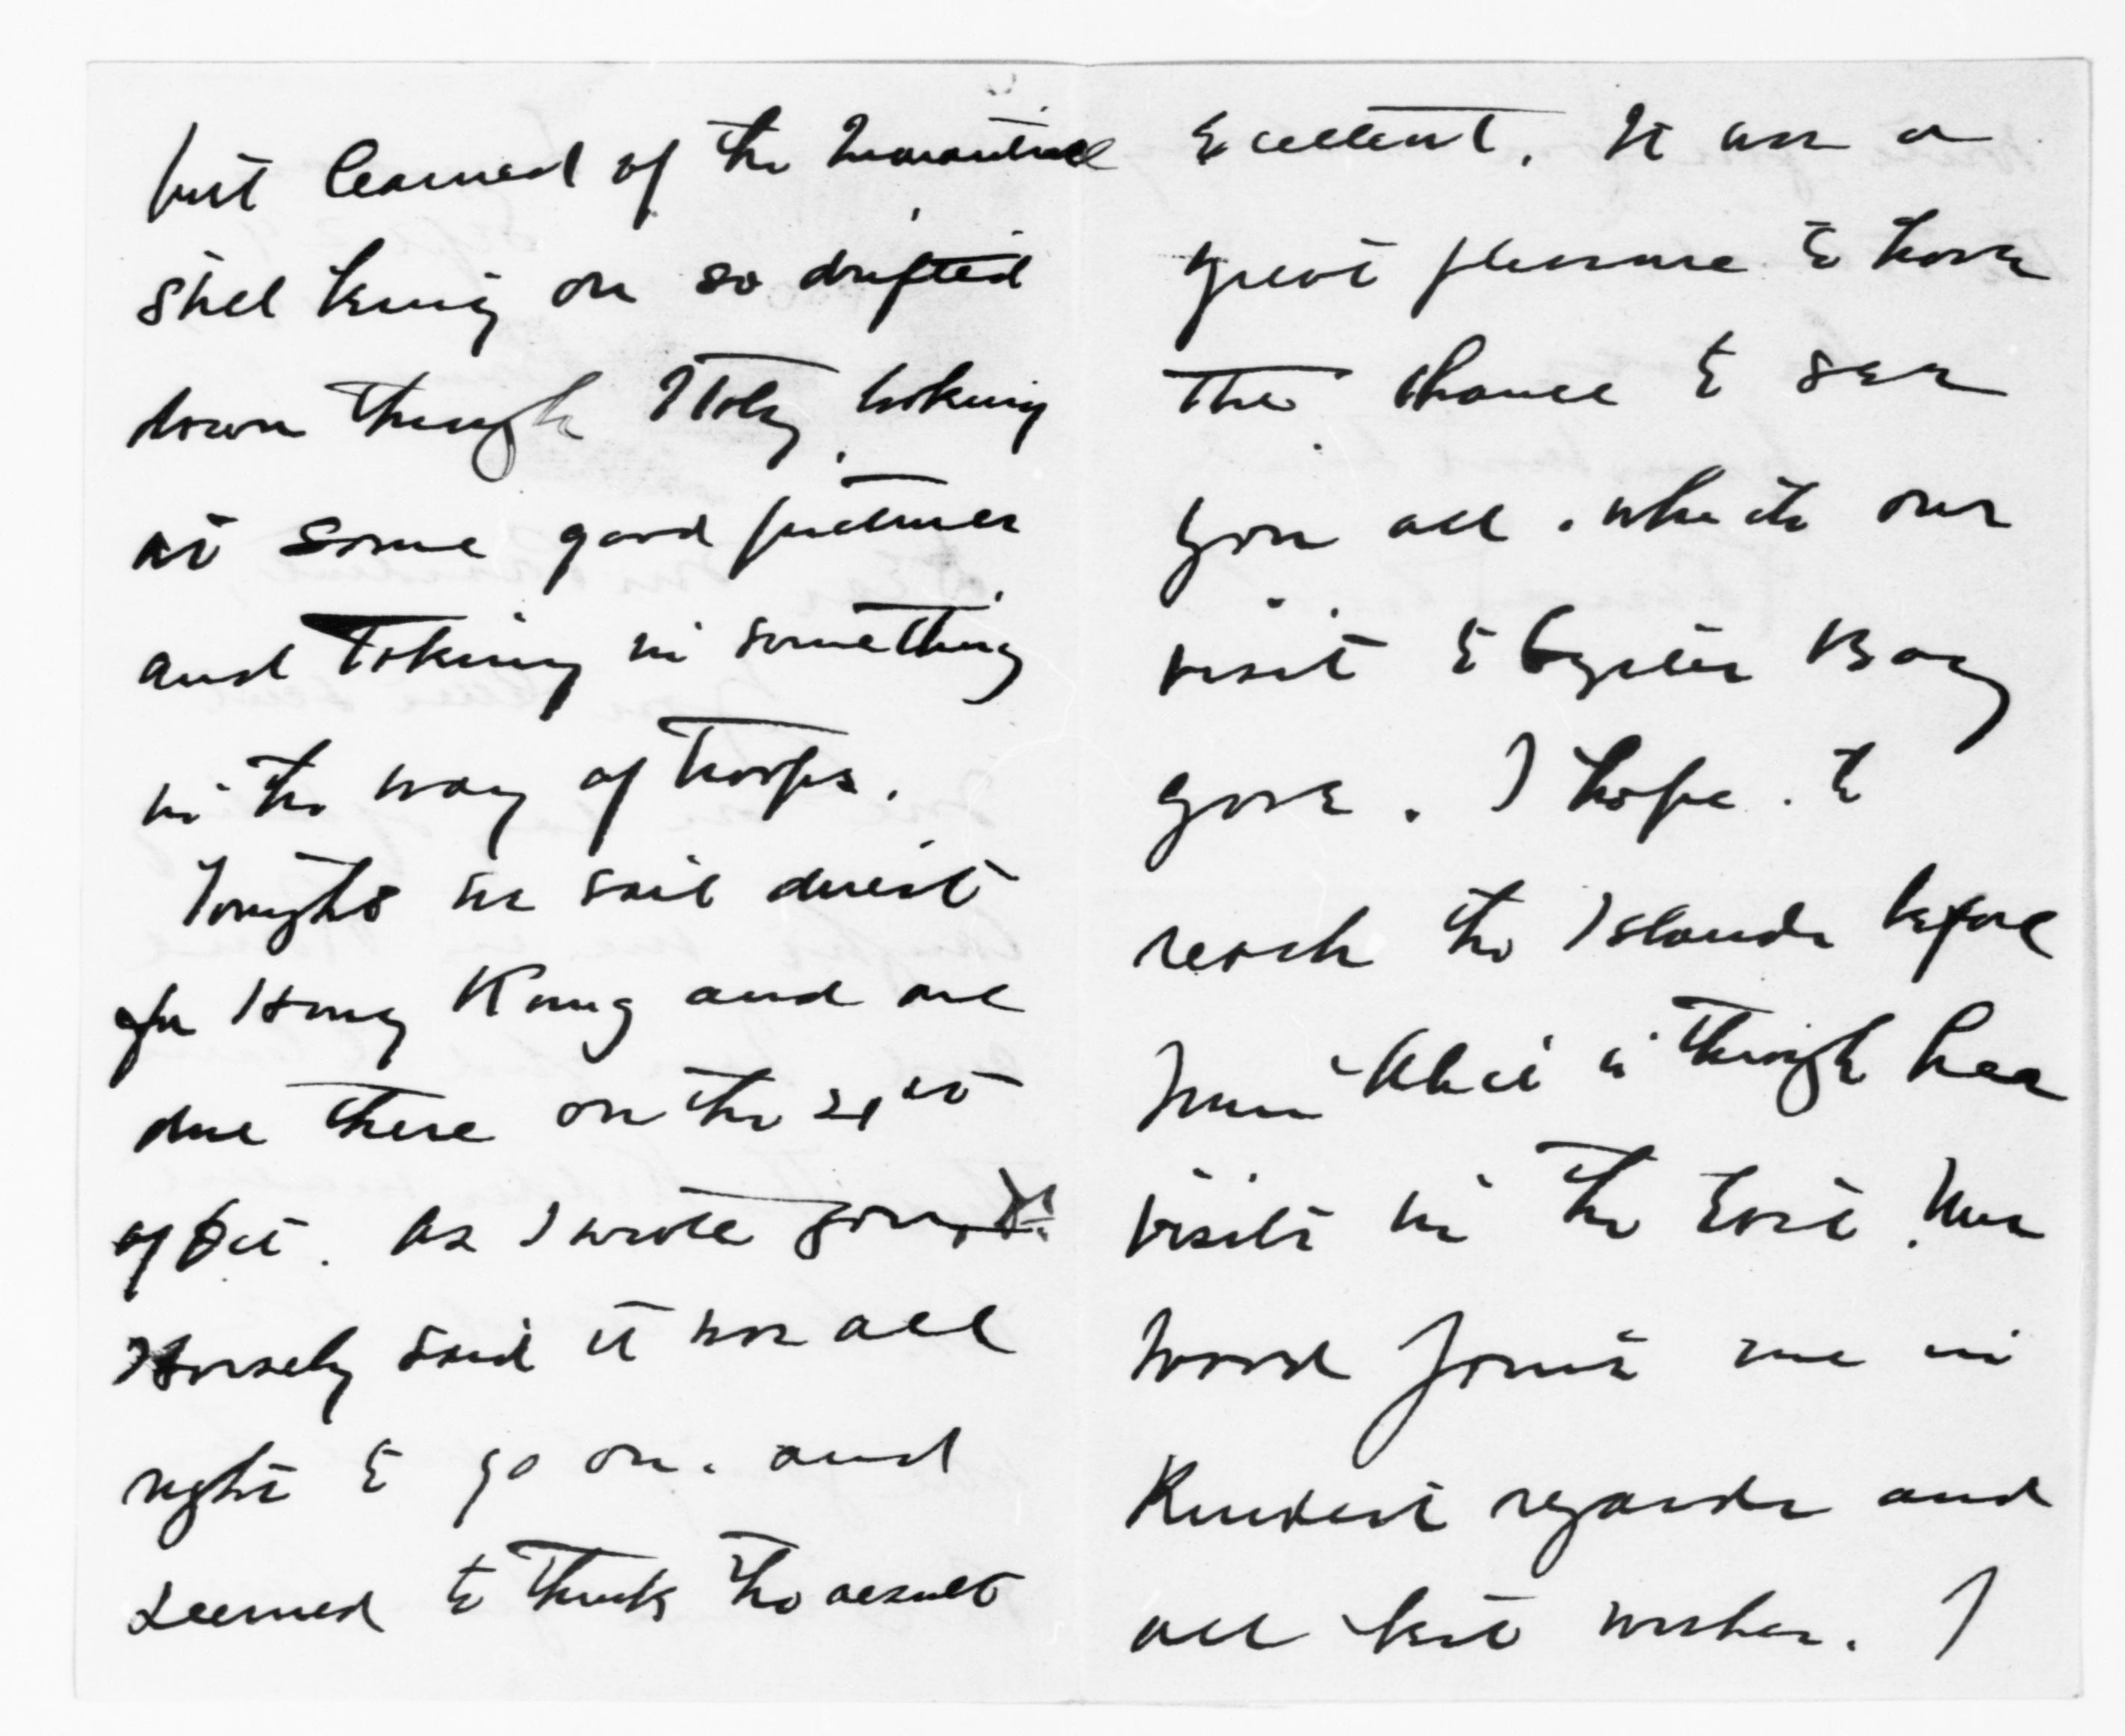 but learned of the Quarantine
still being on so drifted
down through Italy, looking
at some good pictures
and taking in something
in the way of troops.
Tonight we sail direct
for Hong Kong and are
due there on the 21st
of Oct. As I wrote you,
Horsely said it was all
right to go on. and
seemed to think the result
Excellent. It was a
great pleasure to have
the chance to see
you all. which our
visit to Oyster Bay
gave. I hope. to
reach the Islands before
Miss Alice is through her
visits in the East. Mrs
Wood joins me in
Kindest regards and
all best wishes. I